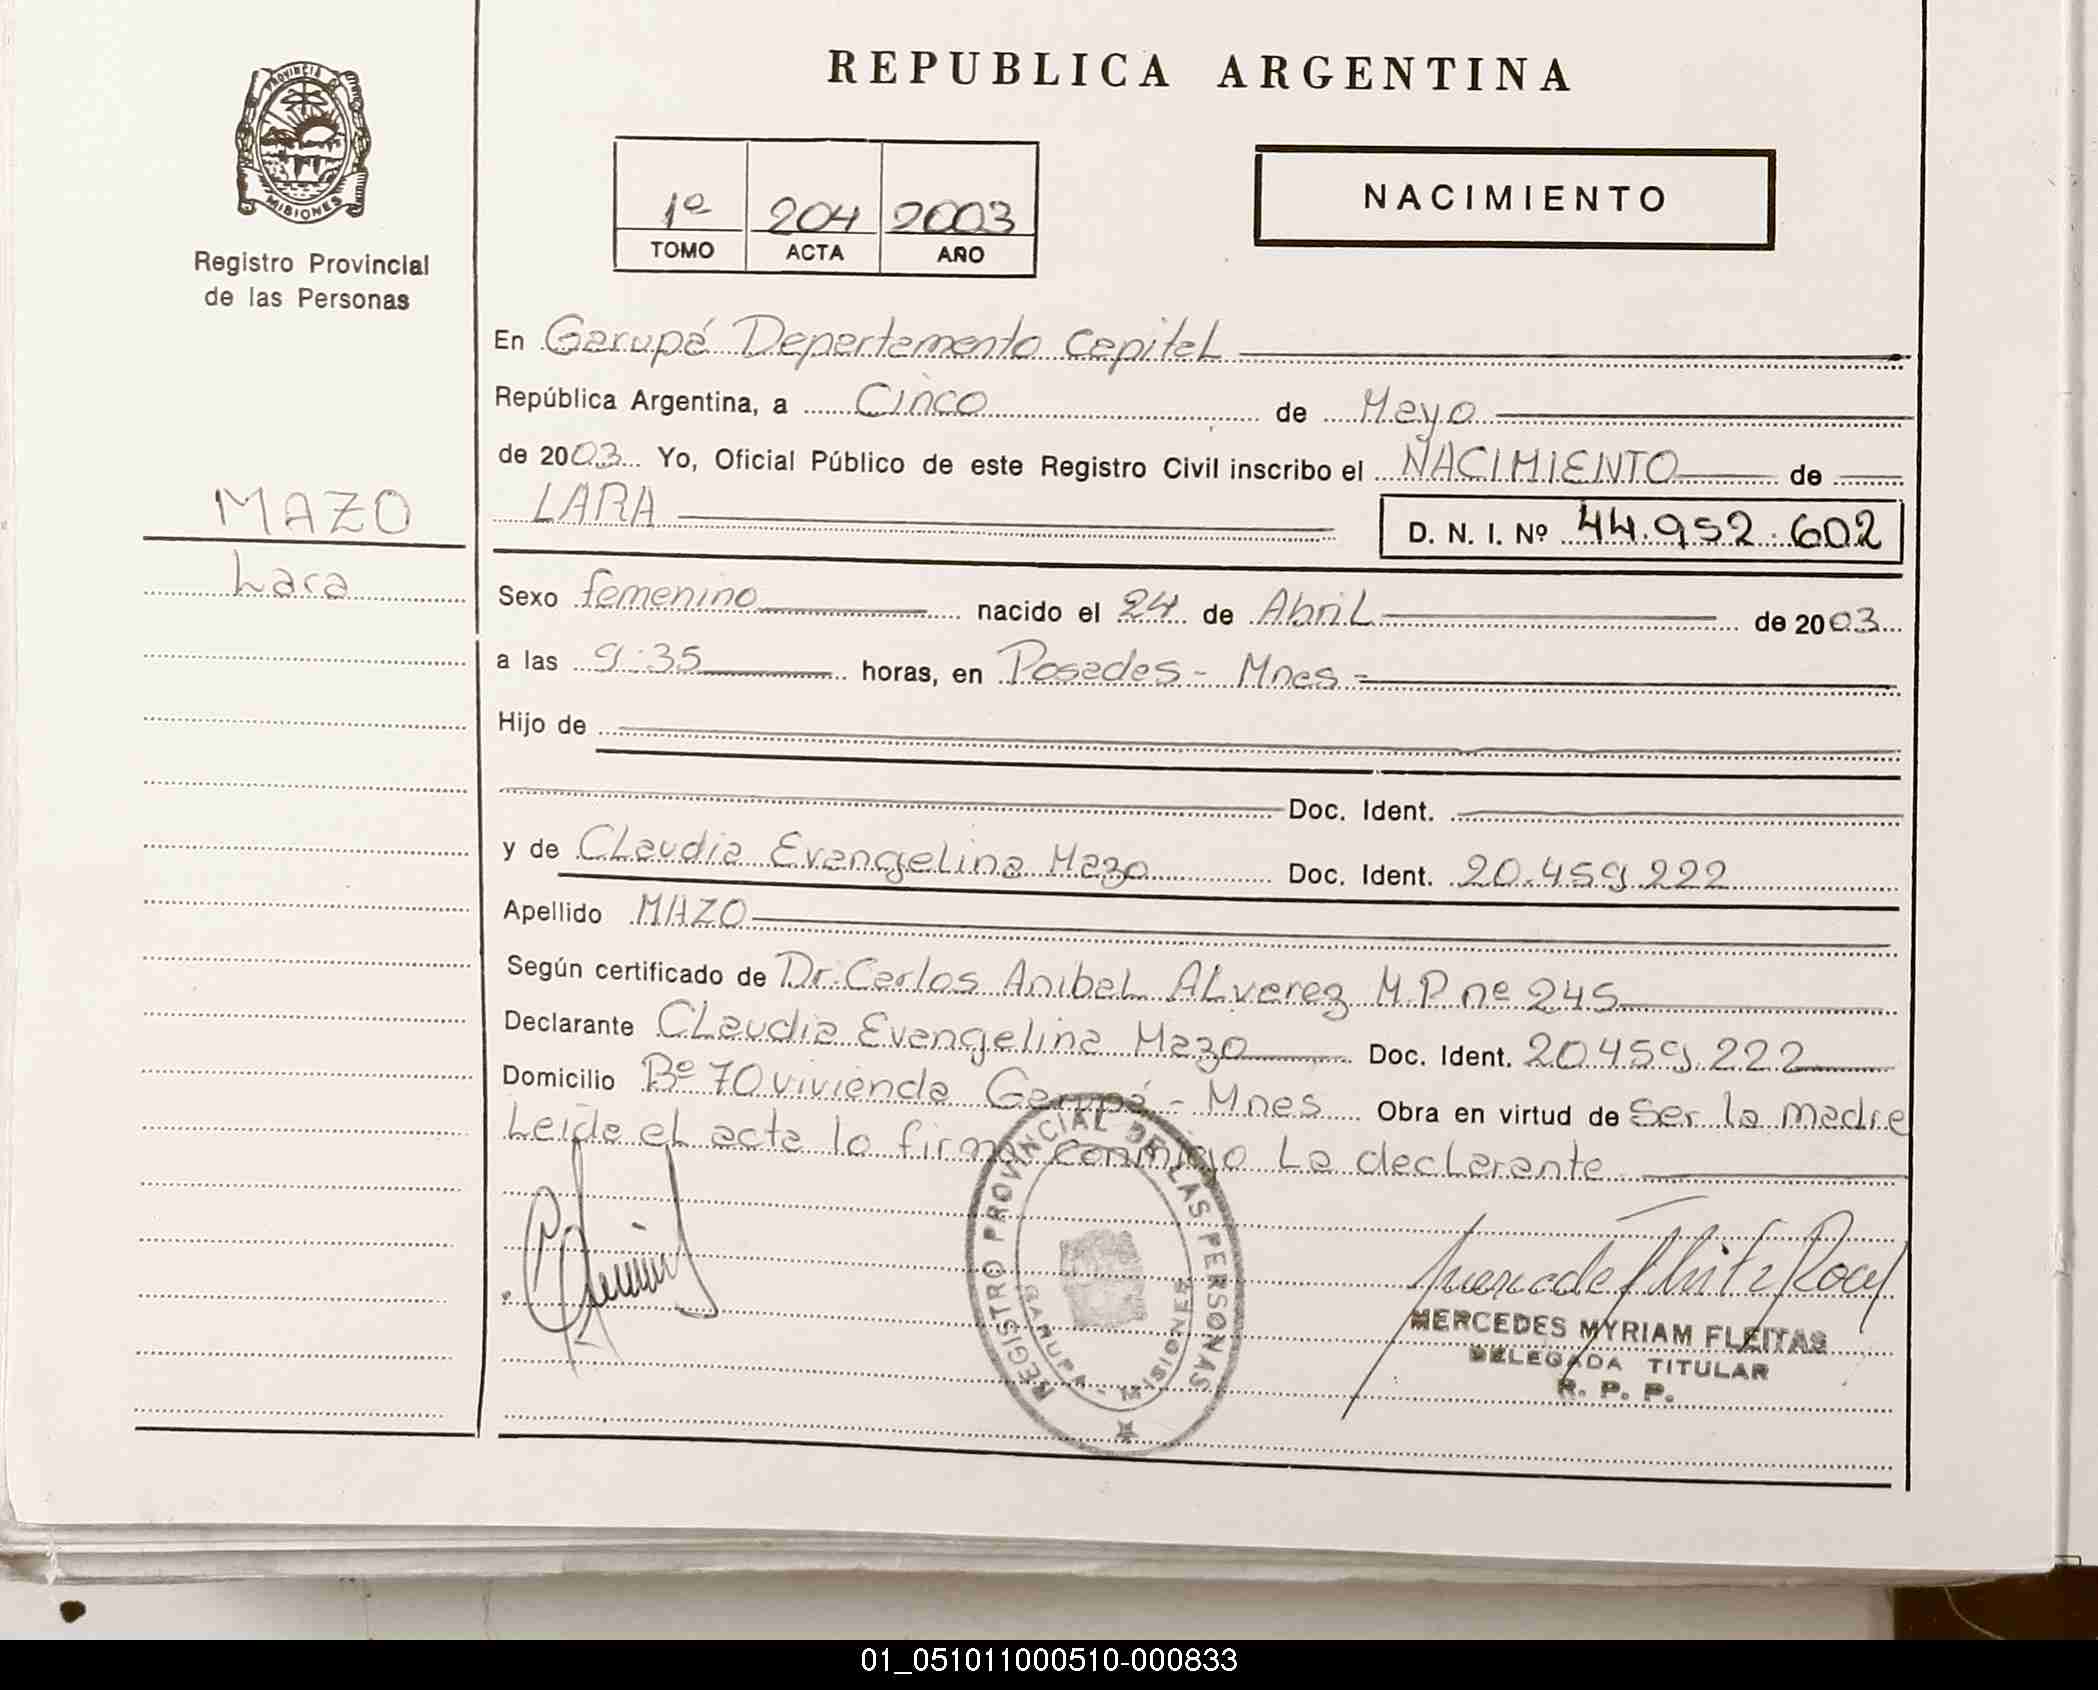 REPUBLICA ARGENTINA
PROVINCIA
MISIONES
Registro Provincial
de las Personas
1º 204 2003
TOMO ACTA AÑO
NACIMIENTO
En Garupá Departamento Capital
República Argentina, a Cinco de Mayo
de 2003 Yo, Oficial Público de este Registro Civil inscribo el NACIMIENTO de
LARA D. N. I. Nº 44.952.602
MAZO
Lara
Sexo femenino nacido el 24 de Abril de 2003
a las 9:35 horas, en Posadas - Mnes -
Hijo de
Doc. Ident.
y de Claudia Evangelina Mazo Doc. Ident. 20.459.222
Apellido MAZO
Según certificado de Dr. Carlos Anibal Alvarez M.P. nº 245
Declarante Claudia Evangelina Mazo Doc. Ident. 20.459.222
Domicilio Bº 70 vivienda Garupá - Mnes Obra en virtud de ser la madre
Leida el acta lo firma conmigo La declarante
REGISTRO PROVINCIAL DE LAS PERSONAS
GARUPA - MISIONES
MERCEDES MYRIAM FLEITAS
DELEGADA TITULAR
R. P. P.
01_051011000510-000833